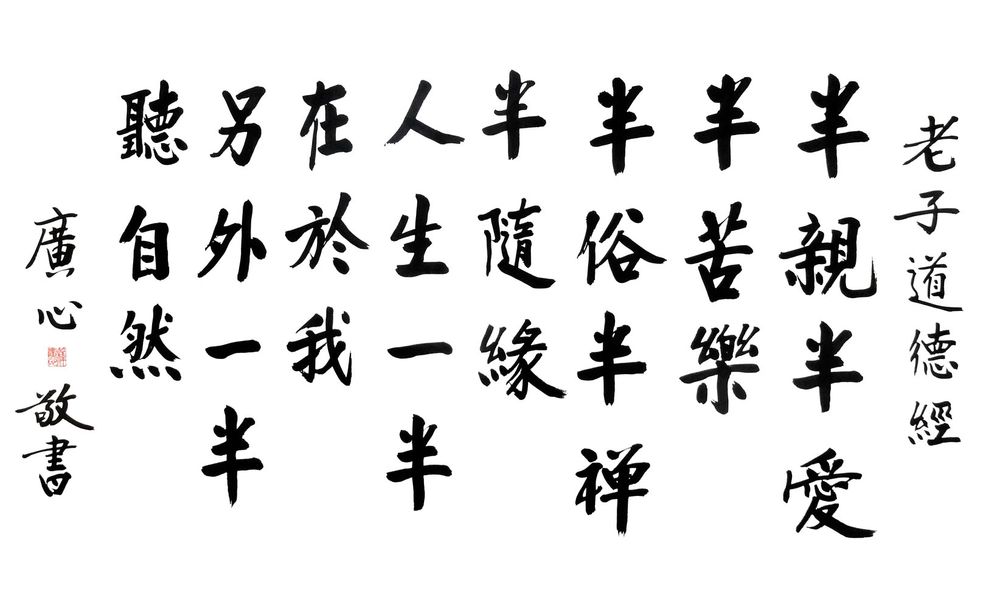 老子道德經
半親半愛
半苦樂
半俗半禅
半隨緣
人生一半
在於我
另外一半
聽自然
廣心
敬書